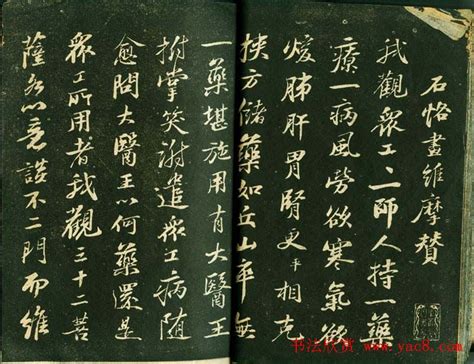 石恪畫維摩贊
我觀衆工二師人持一藥
療一病風勞欲寒氣欲
煖肺肝胃腎更平相克
挾方儲藥如丘山卒無
一藥堪施用有大醫王
拊掌笑謝遣衆工病隨
愈問大醫王以何藥還是
衆工所用者我觀三十二菩
薩各以意談不二門而維
书法欣赏 www.yac8.com